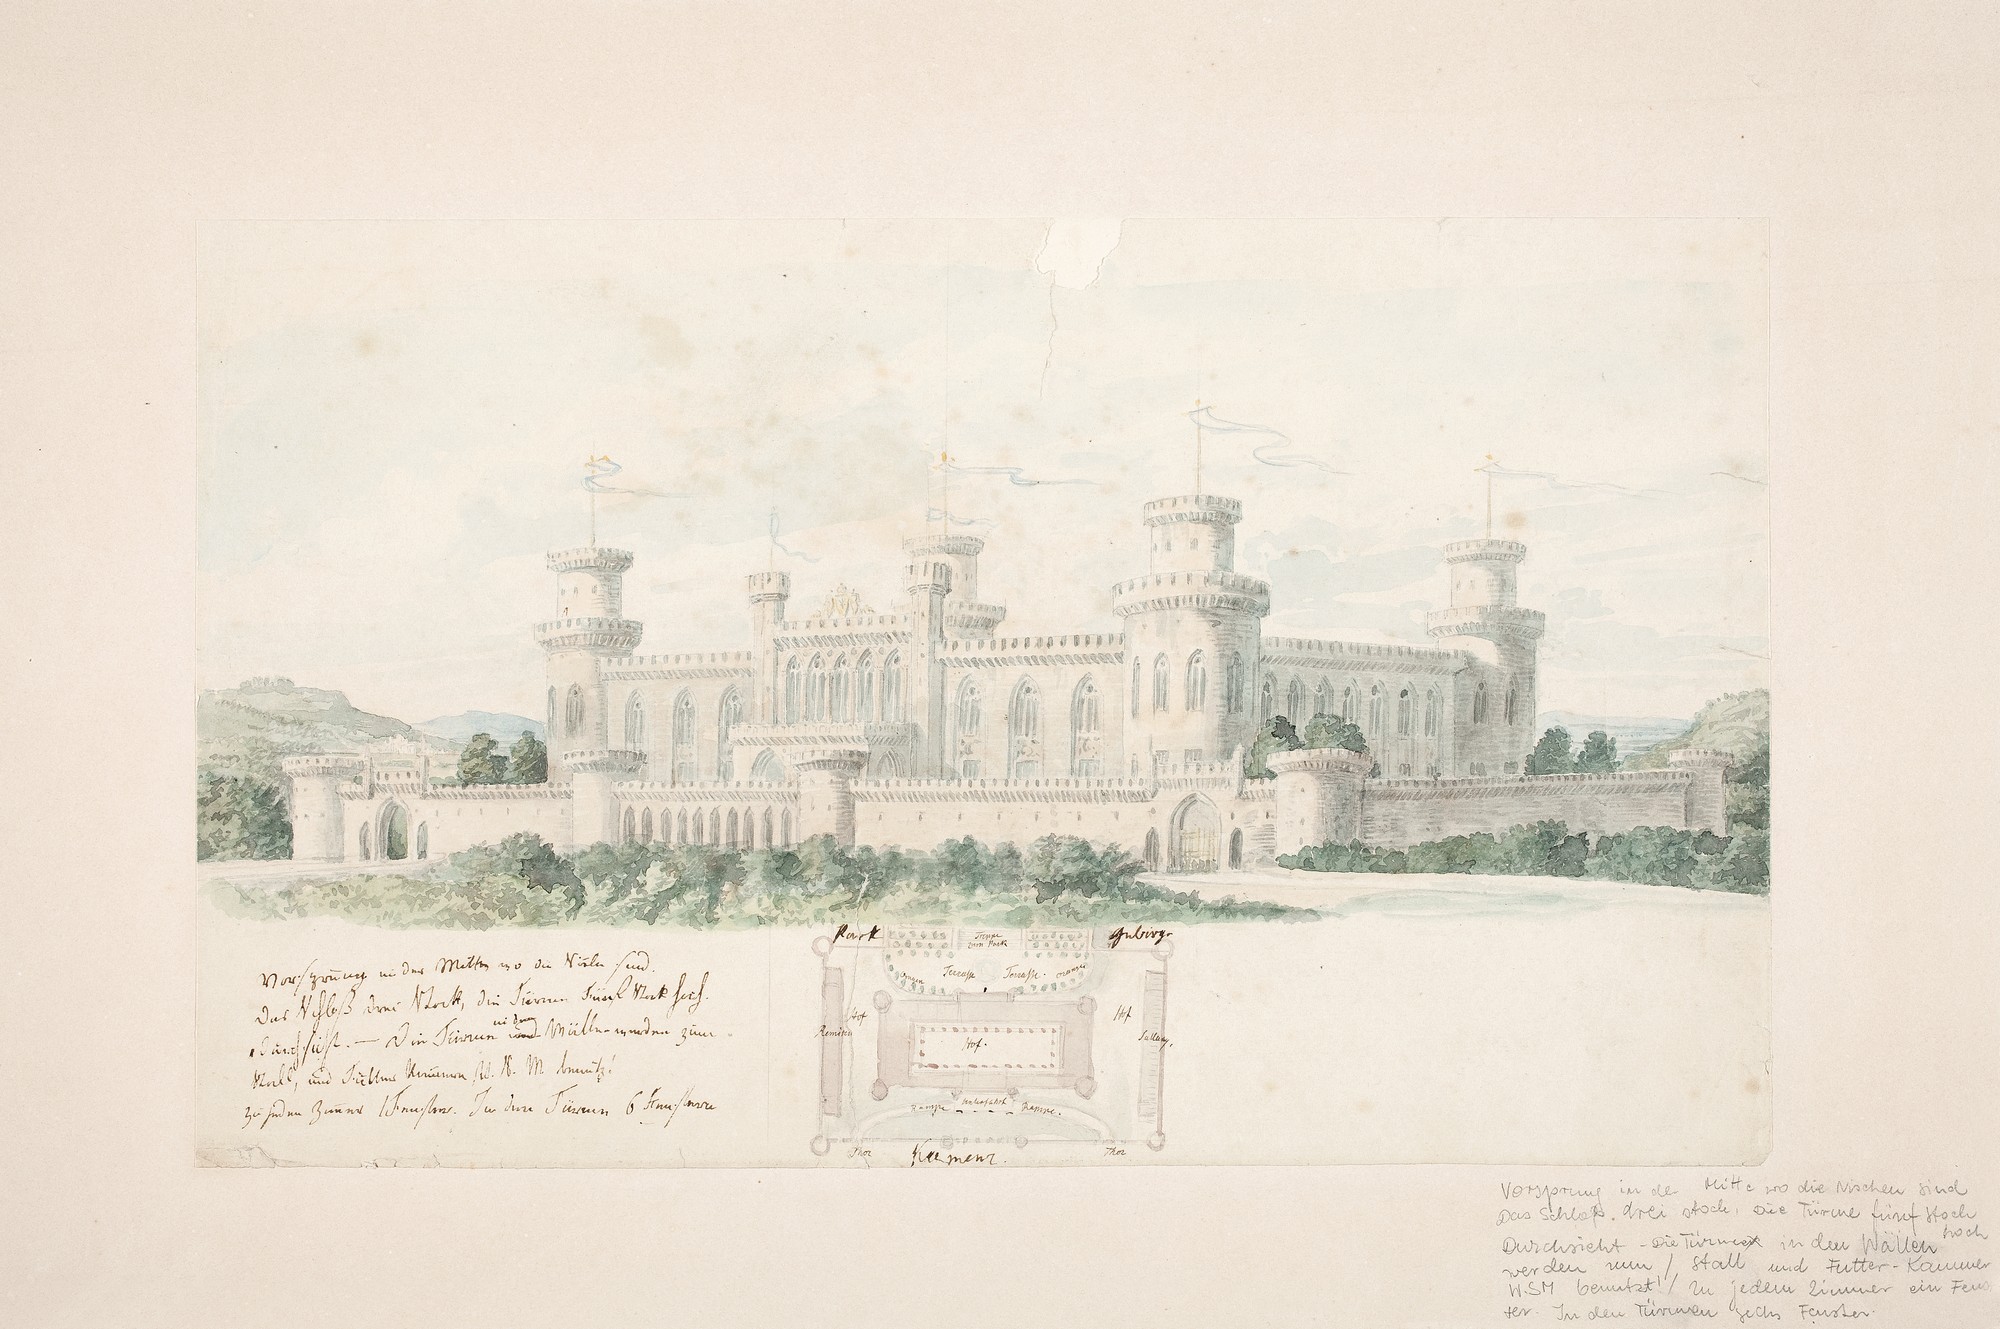 Park
Treppe
zum Park
Gebirge
Terrasse Terrasse. Orangen
Vorsprung in der Mitte wo die sind.
Das Schloß drei Stock, die Türme Fünf Stock hoch.
Durchsicht. — Die Türme in den Wällen werden zum
Stall, und Futter Kammer W. S. M benutzt!
Zu jedem Zimmer 1 Fenster. In den Türmen 6 Fenstern
Hof
Remisen
Hof.
Hof
Stallung.
Rampe Unterfahrt Rampe.
Thor
Kamenz.
Thor
Vorsprung in der Mitte wo die Nischen sind
Das Schloß. drei Stock, Die Türme fünf Stock
hoch
Durchsicht - Die Türme in den Wällen
werden zum / Stall und Futter-Kammer
W.S.M benutzt! / Zu jedem Zimmer ein Fens
ter. In den Türmen sechs Fenster.